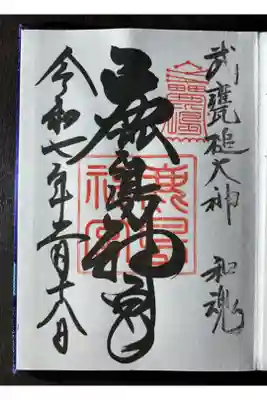 武甕槌大神 和魂
鹿島神宮
鹿島
神宮
令和七年二月十八日